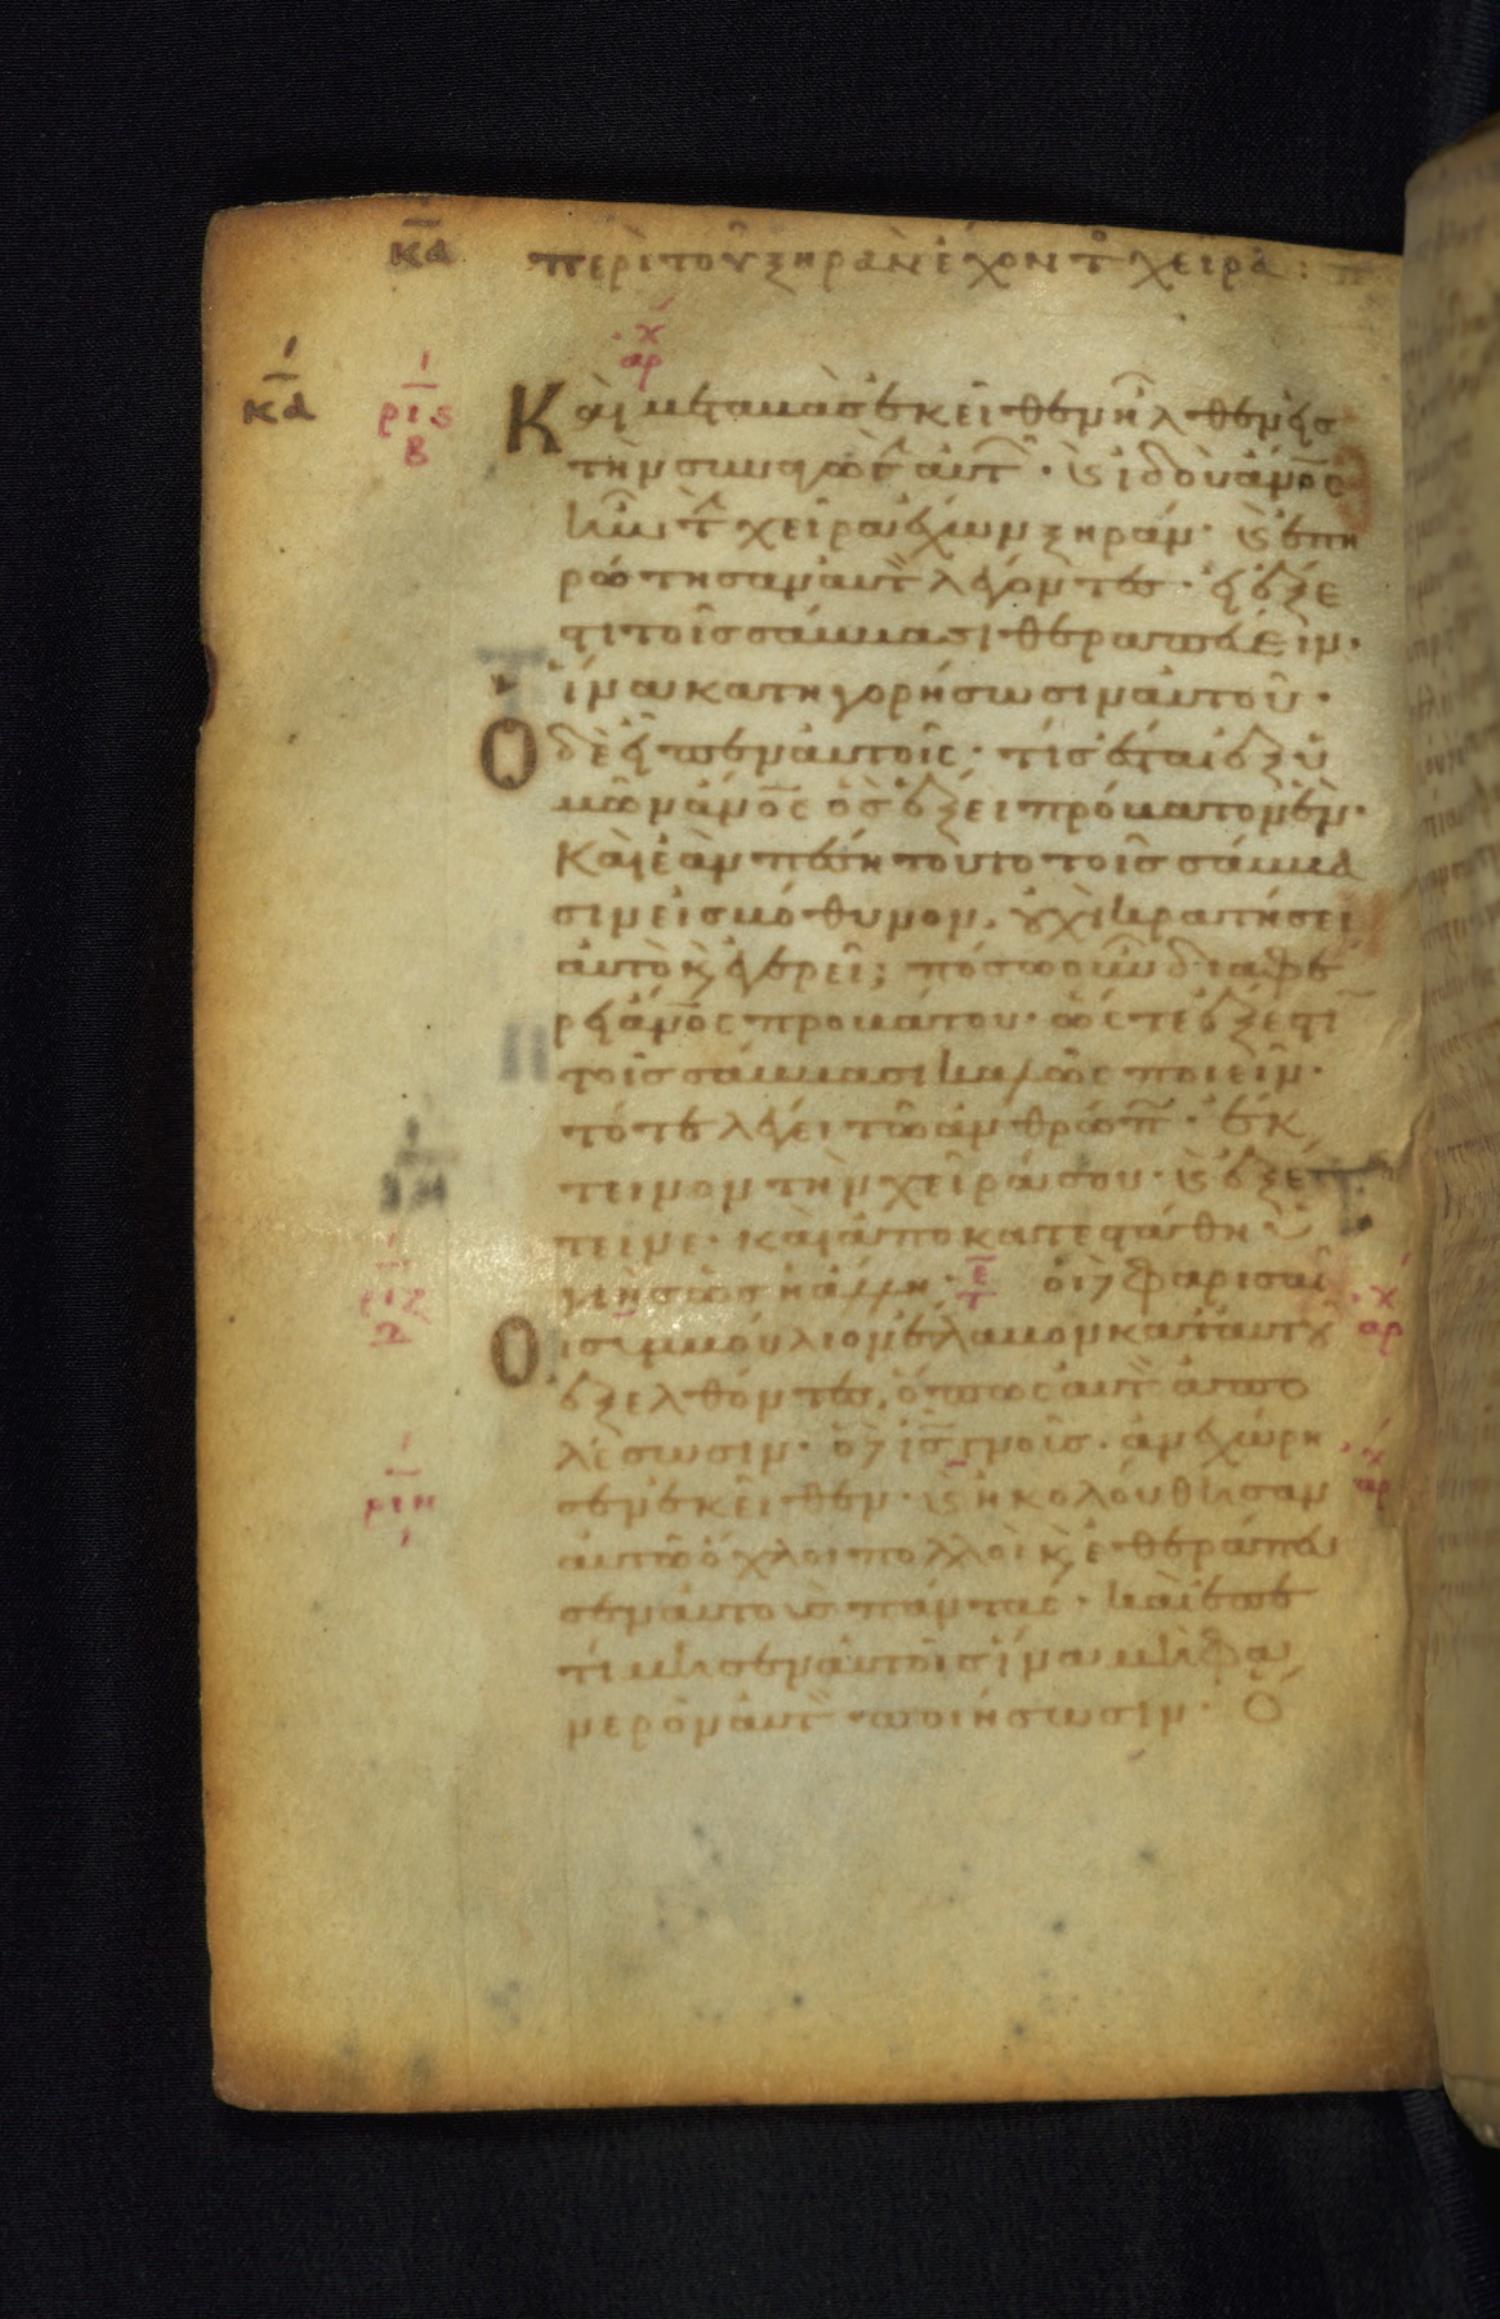 κα περὶ τοῦ ξηρὰν ἔχοντ χεῖρα :
χ
αρ
κα ριϛ Καὶ μεταβὰς ἐκεῖθεν ἦλθεν εἰς
β τὴν συναγωγὴν αὐτ · κ ἰδοὺ ἀνος
ἦν τ χεῖρα ἔχων ξηράν · κ ἐπη
ρώτησαν αὐτ λέγοντες · εἰ ἔξε
στι τοῖς σάββασι θεραπεύειν ·
ἵνα κατηγορήσωσιν αὐτοῦ ·
Ο δὲ εἶπεν αὐτοῖς · τίς ἔσται ἐξ ὑ
μῶν ἀνος ὃς ἕξει πρόβατον ἕν ·
Καὶ ἐὰν πέση τοῦτο τοῖς σάββα
σιν εἰς βόθυνον, οὐχὶ κρατήσει
αὐτὸ κ ἐγερεῖ; πόσω οὖν διαφέ
ρει ἀνος προβάτου · ὥστε ἔξεστι
τοῖς σάββασι καλῶς ποιεῖν ·
τότε λέγει τῶ ἀνθρώπ · ἔκ
τεινον τὴν χεῖρά σου · κ ἐξέ
τεινε · καὶ ἀποκατεστάθη ὑ
ριζ γιὴς ὡς ἡ ἄλλη · τε οἱ δὲ φαρισαῖ χ
Οι συμβούλιον ἔλαβον κατ αὐτοῦ αρ
ἐξελθόντες, ὅπως αὐτ ἀπο
λέσωσιν · ὁ δὲ ις γνοὺς · ἀνεχώρη χ
ριη σεν ἐκεῖθεν · κ ἠκολούθησαν αρ
αὐτῶ ὄχλοι πολλοὶ κ ἐθεράπευ
σεν αὐτοὺς πάντας · καὶ ἐπε
τίμησεν αὐτοῖς ἵνα μὴ φα
νερὸν αὐτ ποιήσωσιν · Ο